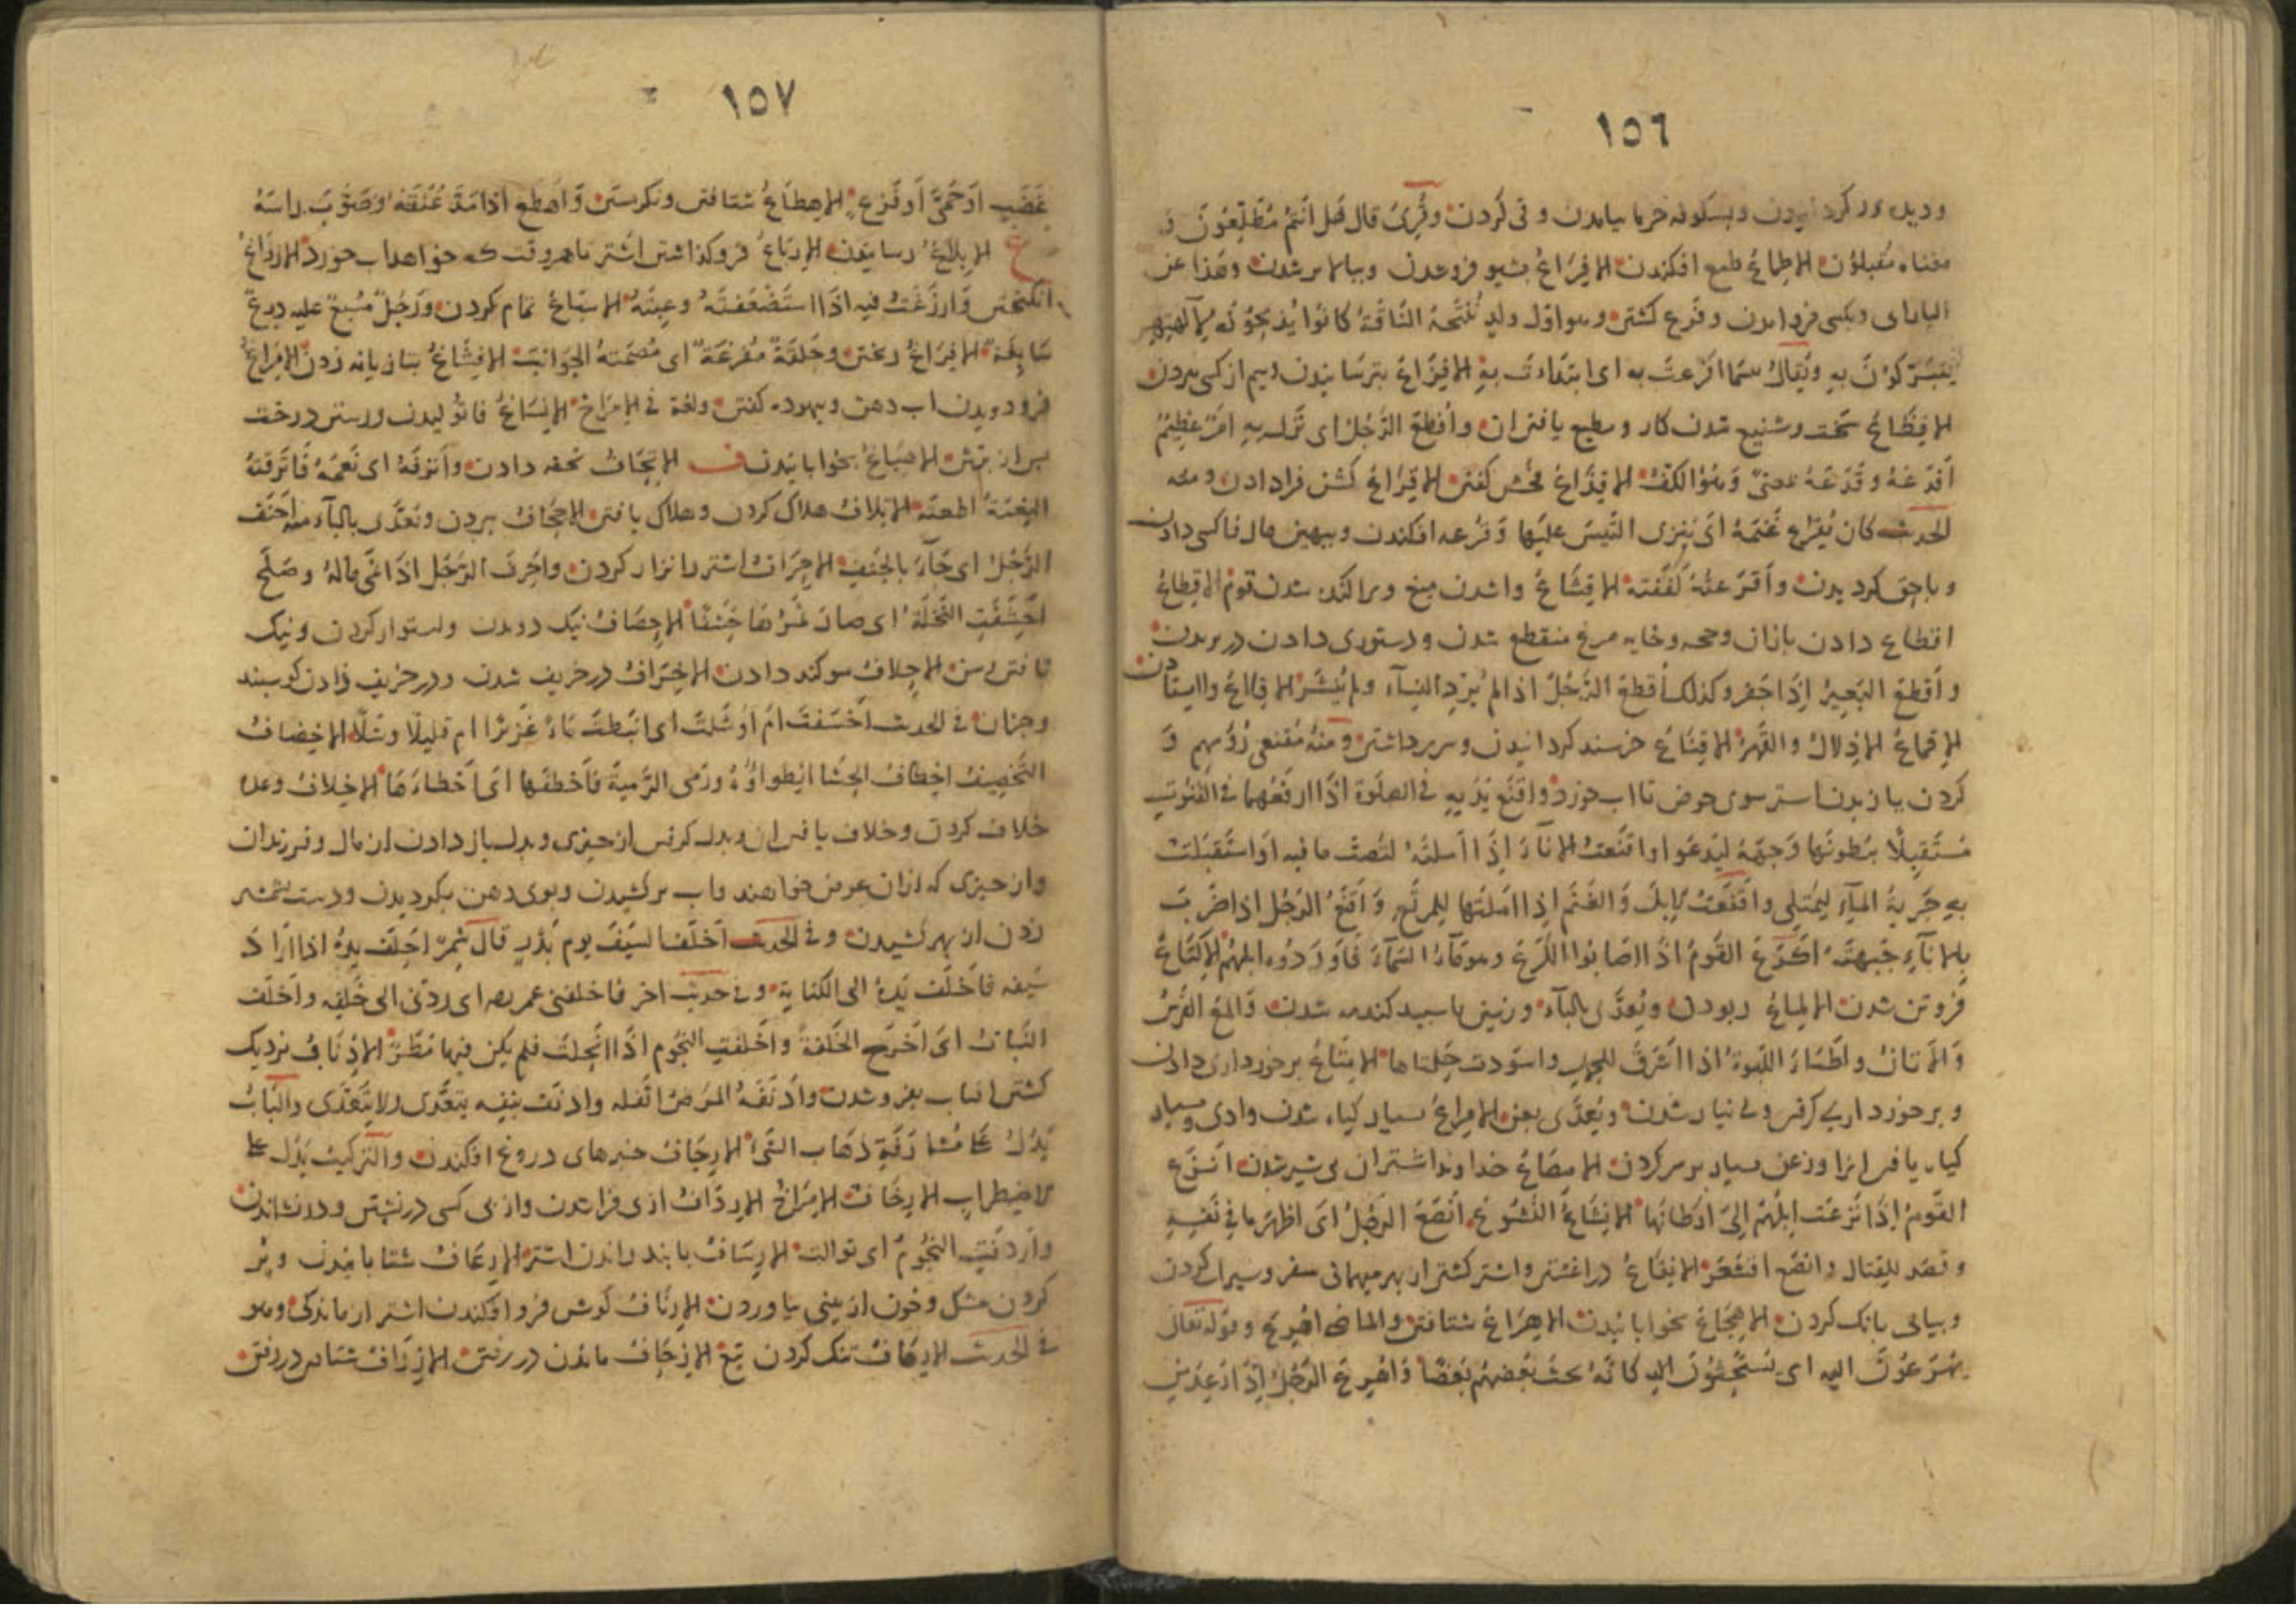 ١٥٦
وديدور كردانيدن وبشكوفه خرما بيامدن وقى كردن وقُرِئَ قال هَل أنتُم مُطْلِعُونَ
معناه مُقبلون الإطماعُ طمع افكندن الإفراعُ بشيو فروشدن وببالا برشدن وهذا عن
وبكسى فرود آمدن وفَرَع كشتن وهو اوّل ولدٍ تُنْتَجُهُ النّاقَةُ كانُوا يَذبَحُونَه لآلهتهم
يتبرّكون به ويُقالُ بئسَما افرَعتَ به اى ابتدأتَ بهِ الإفزاعُ بترسانيدن وبيم از كسى ببردن
الإفظاعُ سخت وشنيع شدن كار و يافتن ان وأُفظِعَ الرَّجُلُ اى نَزَلَ بهِ امرٌ عَظيمٌ
أقدَعَهُ وقَدَعَهُ بمعنىً وَهُوَ الكَفُّ الإقذاعُ فحش كفتن الإقراعُ كشن فرا دادن ومنه
الحديث كان يُقرِعُ غَنَمَهُ اى يُنزِى التَّيسَ عليها وَقُرعه افكندن وببهين مال فا كسى دادن
وباحق كرديدن وأقرَعتُهُ كَفَفتُه الإقشاعُ واشدن ميغ وپراكنده شدن قوم الإقطاعُ
اقطاع دادن بازان وحجه وخايه مرغ منقطع شدن ودستورى دادن در بريدن
وأقطَعَ البَعيرُ إذا جَفَرَ وكذلك أقطَعَ الرَّجُلُ اذا لم يُرِدِ النِّساءَ ولم يَنْتَشِرْ الإقلاعُ واايستادن
الإقماعُ الإذلالُ والقَهرُ الإقناعُ خرسند كردانيدن وسر برداشتن ومنهُ مُقنِعى رُؤُسِهِم وَ
كردن يازيدن استر سوى حوض تا اب خورد واقنَعَ يَدَيهِ فى الصلوة اذا ارفَعَهُما فى القُنُوتِ
مُستَقبِلًا بِبُطونِها وَجهَهُ ليَدعُوا واقنَعتُ الإناءَ إذا اَملتُهُ لتَصُبَّ ما فيه او استَقبَلتَ
بهِ جَريَةَ الماءِ ليَمتَلى واقنَعتُ الإبِلَ وَالغَنَمَ اِذا اَمَلتَها لِلمَرتَعِ وَاَقنَعَ الرَجُلُ اذا ضَرَبَ
بالإناءِ جَبهَتَه أكرَعَ القَومُ اذا اصَابُوا الكَرَعَ وهو ماءُ السَّماءِ فَاَورَدُوه ابلهُم الإكتاعُ
فروتن شدن الإلماعُ ربودن ويُعدّى بالباء وزمين باسپيد كندمه شدن وَالمَعَ الفَرَسُ
وَالأَتانُ واَطباءُ اللَّبوةِ اذا اَشرَقَ للحمل واسوَدّت حَلمَتاها الإمتاعُ برخوردارى دادن
وبرخوردارى كرفتن وبى نياز شدن ويُعدّى بعن الإمراعُ بسيار كياه شدن وادى وبسيار
كياه يافتن انرا وروغن بسيار بر سر كردن الإمصاعُ خداوند اشتران بى شير شدن انزَعَ
القَومُ إذا نَزَعَت ابِلُهُم اِلى اَوطانِها الإنشاعُ النُّشُوعُ انصَعَ الرَجُلُ اَى اظهَرَ ما فى نَفسِهِ
وقصَد للقِتال وانصَع اقشَعَرَّ الإنقاعُ دراغشتن واشتر كشتن از بهر ميهمانى سفر وسيراب كردن
وبيابى بانك كردن الإهجاعُ بخوابانيدن الإهراعُ شتافتن والماضى اُهرِعَ وقوله تعالى
يُهرَعُونَ اليه اى يُستَحَثُّونَ اليه كانّهُ يحثُّ بَعضُهُم بَعضًا وَاُهرِعَ الرَّجُلُ اِذا اُرعِدَ من
١٥٧
غَضَبٍ اَو حُمّىً اَو فَزَعٍ الإهطاعُ شتافتن ونكرستن وَاَهطَعَ اذا مَدَّ عُنُقَهُ وصَوَّبَ راسَهُ
غ الإبلاغُ رسانيدن الإرباغُ فرو كذاشتن اشتر تا هر وقت كه خواهد اب خورد الإرزاغُ
وَاَرزَغتُ فيه اذا استَضعَفتَهُ وعِبتَهُ الإسباغُ تمام كردن وَرَجُلٌ مُسبِغٌ عليه دِرعٌ
سَابِغَةٌ الإفراغُ ريختن وحَلقَةٌ مُفرَغَةٌ اى مُصمَتةُ الجَوانِبِ الإفشاغُ بتازيانه زدن الإمراغُ
فرود ويدن اب دهن وبيهوده كفتن ولغة فى الإمراخ الإنساغُ فا توليدن ورستن درخت
پس از بُرش الإصباغُ بخوابانيدن ف الإتحافُ تحفه دادن واَترَفَهُ اى نَعَّمَهُ فَاَترَفَتهُ
النِعمَةُ اطغته الإتلافُ هلاك كردن وهلاك يافتن الإجحافُ ببردن ويُعدّى بالباء منه اَجنَفَ
الرَّجُلُ اى جَاءَ بالجَنَفِ الإحرافُ اشتر را نزار كردن واَحرَفَ الرَّجُل اذا نَمى مالهُ وصَلَحَ
احشَفَتِ النَّخلَةُ اى صارَ تَمرُها حَشَفًا الإحصافُ نيك دويدن واستوار كردن ونيك
تافتن رسن الإحلافُ سوكند دادن الإخرافُ در خريف شدن ودر خريف زادن كوسپند
وجز ان فى الحديث اَخسَفتَ اَم اَوشَلتَ اى انبَطتَ ماءً غَزيرًا ام قليلًا وشَلًا الإخصافُ
التَّخصيفُ اخِطافُ الحَشا انطواؤُهُ ورَمى الرَّميةَ فَاَخطَفَها اى اَخطاءَها الإخلافُ وعده
خلاف كردن وخلاف يافتن ان وبدل كرفتن از چيزى وبدل باز دادن از مال وفرزندان
واز چيزى كه ازان عوض خواهند واب بركشيدن وبوى دهن بكرديدن ودست بشمشير
زدن از بهر كشيدن وفى الحديث اَخلَفنا السَيفَ يوم بَدرٍ قال شَمِرٌ اَخلَفَ يَدَهُ اذا اَرادَ
سَيفَه فَاَخلَفَ يَدَهُ الى الكنانة وفى حديث اخر فاخلفنى عمر بيده اى ردّنى الى خَلفِه واَخلَفَ
النَباتُ اى اَخرَجَ الخِلفَةَ واَخلَفَتِ النُجُوم اذا اَمحَلَت فلم يكن فيها مَطَرٌ الإدنافُ نزديك
كشتن افتاب بفروشدن واَدنَفَهُ المَرَضُ اثقله وادنَفَ بنفسِه يَتَعَدّى ولا يَتَعَدّى والبَابُ
يَدُلُّ على مُشارَفَةِ ذَهَاب الشَّئ الإرجافُ خبرهاى دروغ افكندن والتَركيبُ يَدُل على
الاضطرابِ الإرخافُ الإمراخُ الإردافُ از پى فرا شدن واز پى كسى در نشستن ودر نشاندن
واَردَفَتِ النُجُومُ اى توالت الإرسافُ با بند راندن اشتر الإرعافُ شتابانيدن وپر
كردن مشك وخون از بينى بياوردن الإرنافُ كوش فرو افكندن اشتر از ماندكى وهو
فى الحديث الإرهافُ تنك كردن تيغ الإزحافُ ماندن در رفتن الإزرافُ شتافتن در رفتن